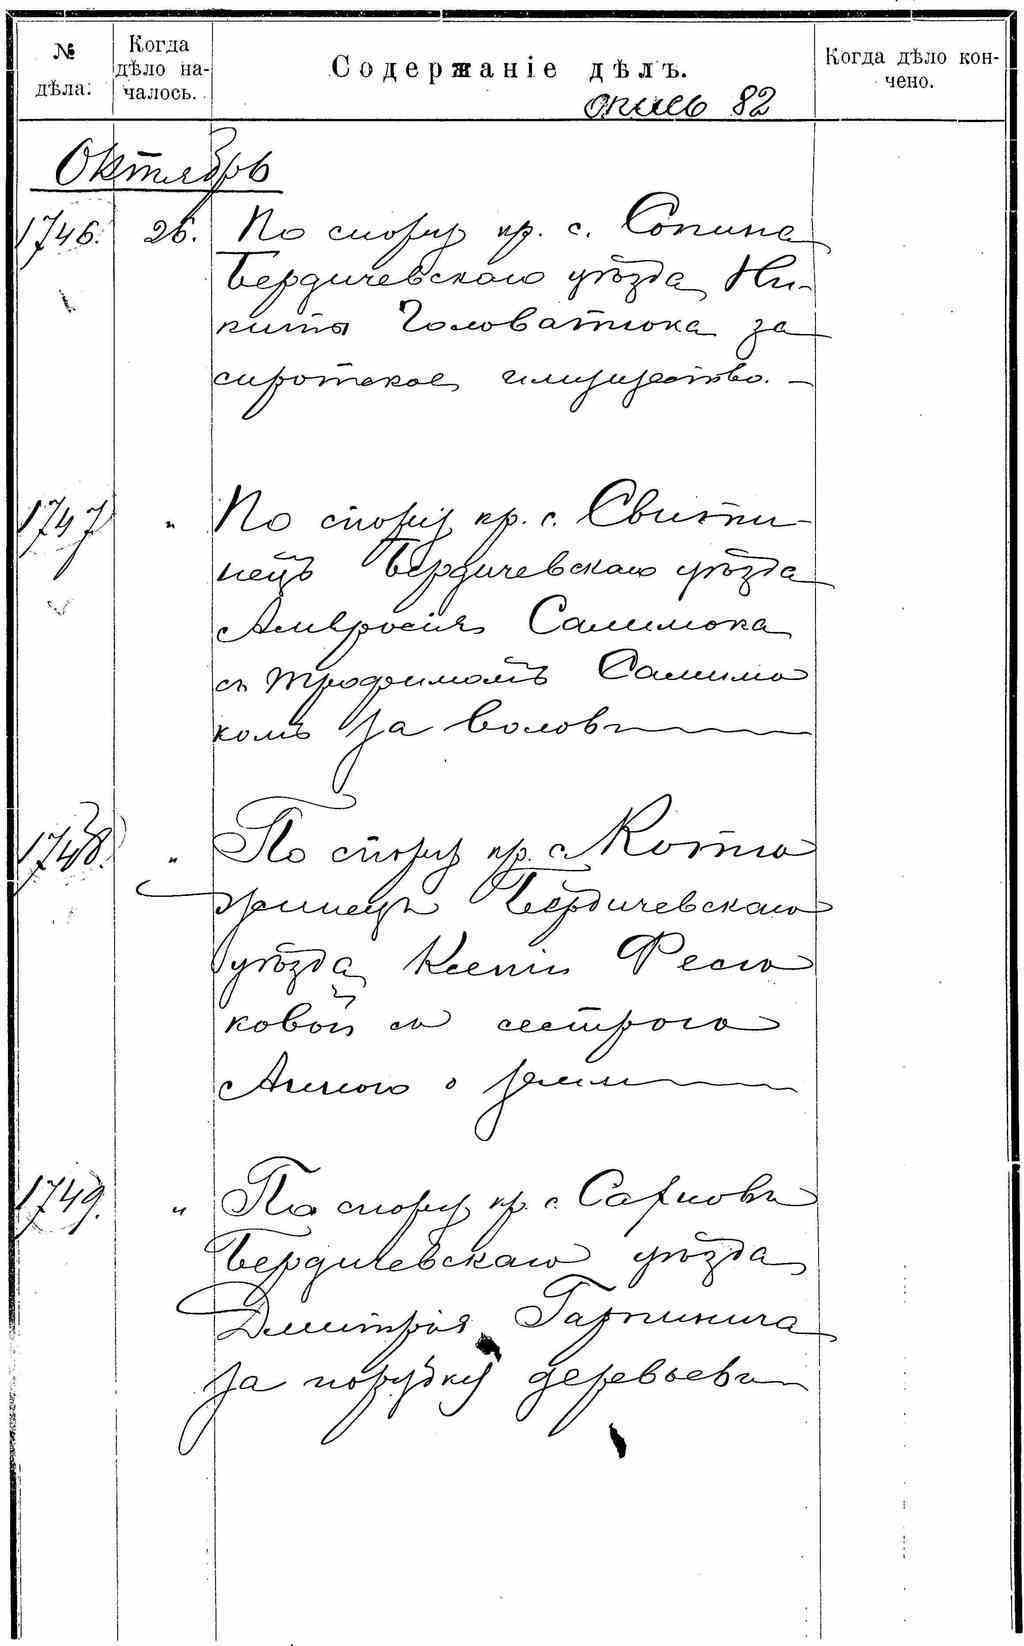 № дѣла:
Когда дѣло на-
чалось.
Содержаніе дѣлъ.
Когда дѣло кон-
чено.
опись 82
Октябрь
1746. 26. По спору кр. с. Сопина
Бердичевскаго уѣзда Ни-
киты Головатюка за
сиротское имущество. –
1747 " По спору кр. с. Свити-
нецъ Бердичевскаго уѣзда
Амвросія Салимона
съ Трофимомъ Салимо
комъ за воловъ
1748. " По спору кр. с. Котю
жинецъ Бердичевскаго
уѣзда Ксеніи Фесю
ковой со сестрою
Анною о земли
1749. " По спору кр. с.
Бердичевскаго уѣзда
Дмитрія
за порубку деревьевъ